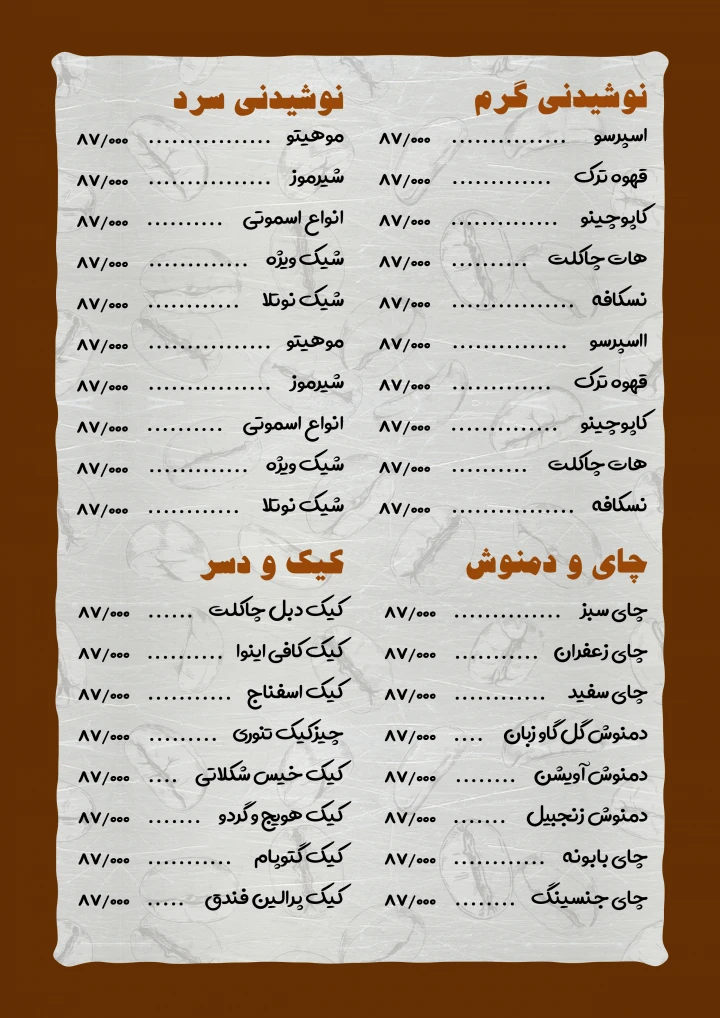 نوشیدنی گرم
اسپرسو ............... ۸۷/۰۰۰
قهوه ترک ............. ۸۷/۰۰۰
کاپوچینو .............. ۸۷/۰۰۰
هات چاکلت .......... ۸۷/۰۰۰
نسکافه ................ ۸۷/۰۰۰
ااسپرسو ............... ۸۷/۰۰۰
قهوه ترک ............. ۸۷/۰۰۰
کاپوچینو .............. ۸۷/۰۰۰
هات چاکلت .......... ۸۷/۰۰۰
نسکافه ................ ۸۷/۰۰۰
نوشیدنی سرد
موهیتو ................ ۸۷/۰۰۰
شیرموز ................ ۸۷/۰۰۰
انواع اسموتی .......... ۸۷/۰۰۰
شیک ویژه ............. ۸۷/۰۰۰
شیک نوتلا ............ ۸۷/۰۰۰
موهیتو ................ ۸۷/۰۰۰
شیرموز ................ ۸۷/۰۰۰
انواع اسموتی .......... ۸۷/۰۰۰
شیک ویژه ............. ۸۷/۰۰۰
شیک نوتلا ............ ۸۷/۰۰۰
چای و دمنوش
چای سبز .............. ۸۷/۰۰۰
چای زعفران ........... ۸۷/۰۰۰
چای سفید ............ ۸۷/۰۰۰
دمنوش گل گاو زبان .... ۸۷/۰۰۰
دمنوش آویشن ........ ۸۷/۰۰۰
دمنوش زنجبیل ....... ۸۷/۰۰۰
چای بابونه ............ ۸۷/۰۰۰
چای جنسینگ ........ ۸۷/۰۰۰
کیک و دسر
کیک دبل چاکلت ...... ۸۷/۰۰۰
کیک کافی اینوا .......... ۸۷/۰۰۰
کیک اسفناج ........... ۸۷/۰۰۰
چیزکیک تنوری ......... ۸۷/۰۰۰
کیک خیس شکلاتی .... ۸۷/۰۰۰
کیک هویج و گردو ....... ۸۷/۰۰۰
کیک گتوپام ........... ۸۷/۰۰۰
کیک پرالین فندق ..... ۸۷/۰۰۰